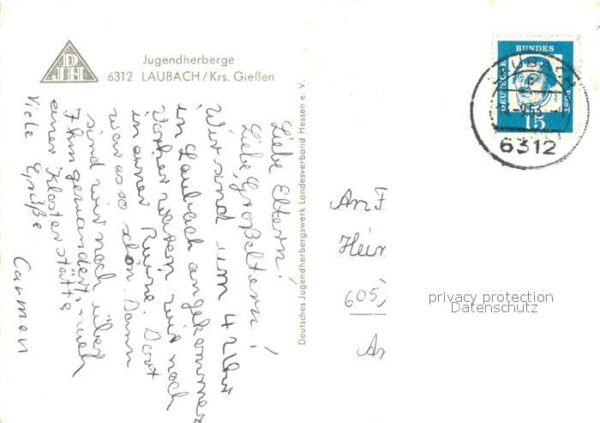 DJH
Jugendherberge
6312 LAUBACH/Krs. Gießen
Deutsches Jugendherbergswerk Landesverband Hessen e. V.
Liebe Eltern!
Liebe Großeltern!
Wir sind um 4 Uhr
in Laubach angekommen
Vorher waren wir noch
in einer Ruine. Dort
war es so schön. Dann
sind wir noch über
7 km gewandert, nach
einer Klosterstätte
Viele Grüße Carmen
DEUTSCHE
BUNDES
POST
15
6312
An F
Hein
605
An
privacy protection
Datenschutz